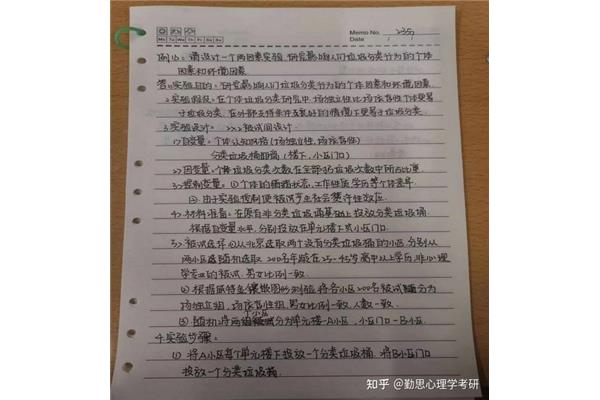 Memo No. 235
Mo Tu We Th Fr Sa Su
Date / /
例13：请设计一个两因素实验，研究影响人们垃圾分类行为的个体
因素和环境因素
答：1.实验目的：研究影响人们垃圾分类行为的个体因素和环境因素.
2.实验假设：在个体垃圾分类研究中，场独立性比场依存性个体更易
于垃圾分类，在外部支持条件及良好的情境下更易于垃圾分类.
3.实验设计：2×2被试间设计
1>自变量：个体认知风格(场独立性、场依存性)
分类垃圾桶距离(楼下，小区门口)
2>因变量：个体垃圾分类次数在全部扔垃圾次数中所占比重.
3>控制变量：①个体的情绪状态、工作性质学历等个体差异.
②由于实验控制使被试产生社会赞许性效应.
4>材料准备：在原有非分类垃圾桶基础上投放分类垃圾桶.
根据自变量水平，分别投放在单元楼下或小区门口.
5>被试选择①从北京选取两个没有分类垃圾桶的小区，分别从
两小区随机选取200名年龄在25-45岁高中以上学历，非心理
学专业的被试，男女比例一致.
②根据威特金镶嵌图形测验将各小区200名被试分为
场独立组，场依存性组，男女比例一致、人数一致.
③随机将两个小区分为单元楼—A小区，小区门口—B小区.
4.实验步骤：
①将A小区每个单元楼下投放一个分类垃圾桶，将B小区门口
投放一个分类垃圾桶.
知乎 @勤思心理学考研